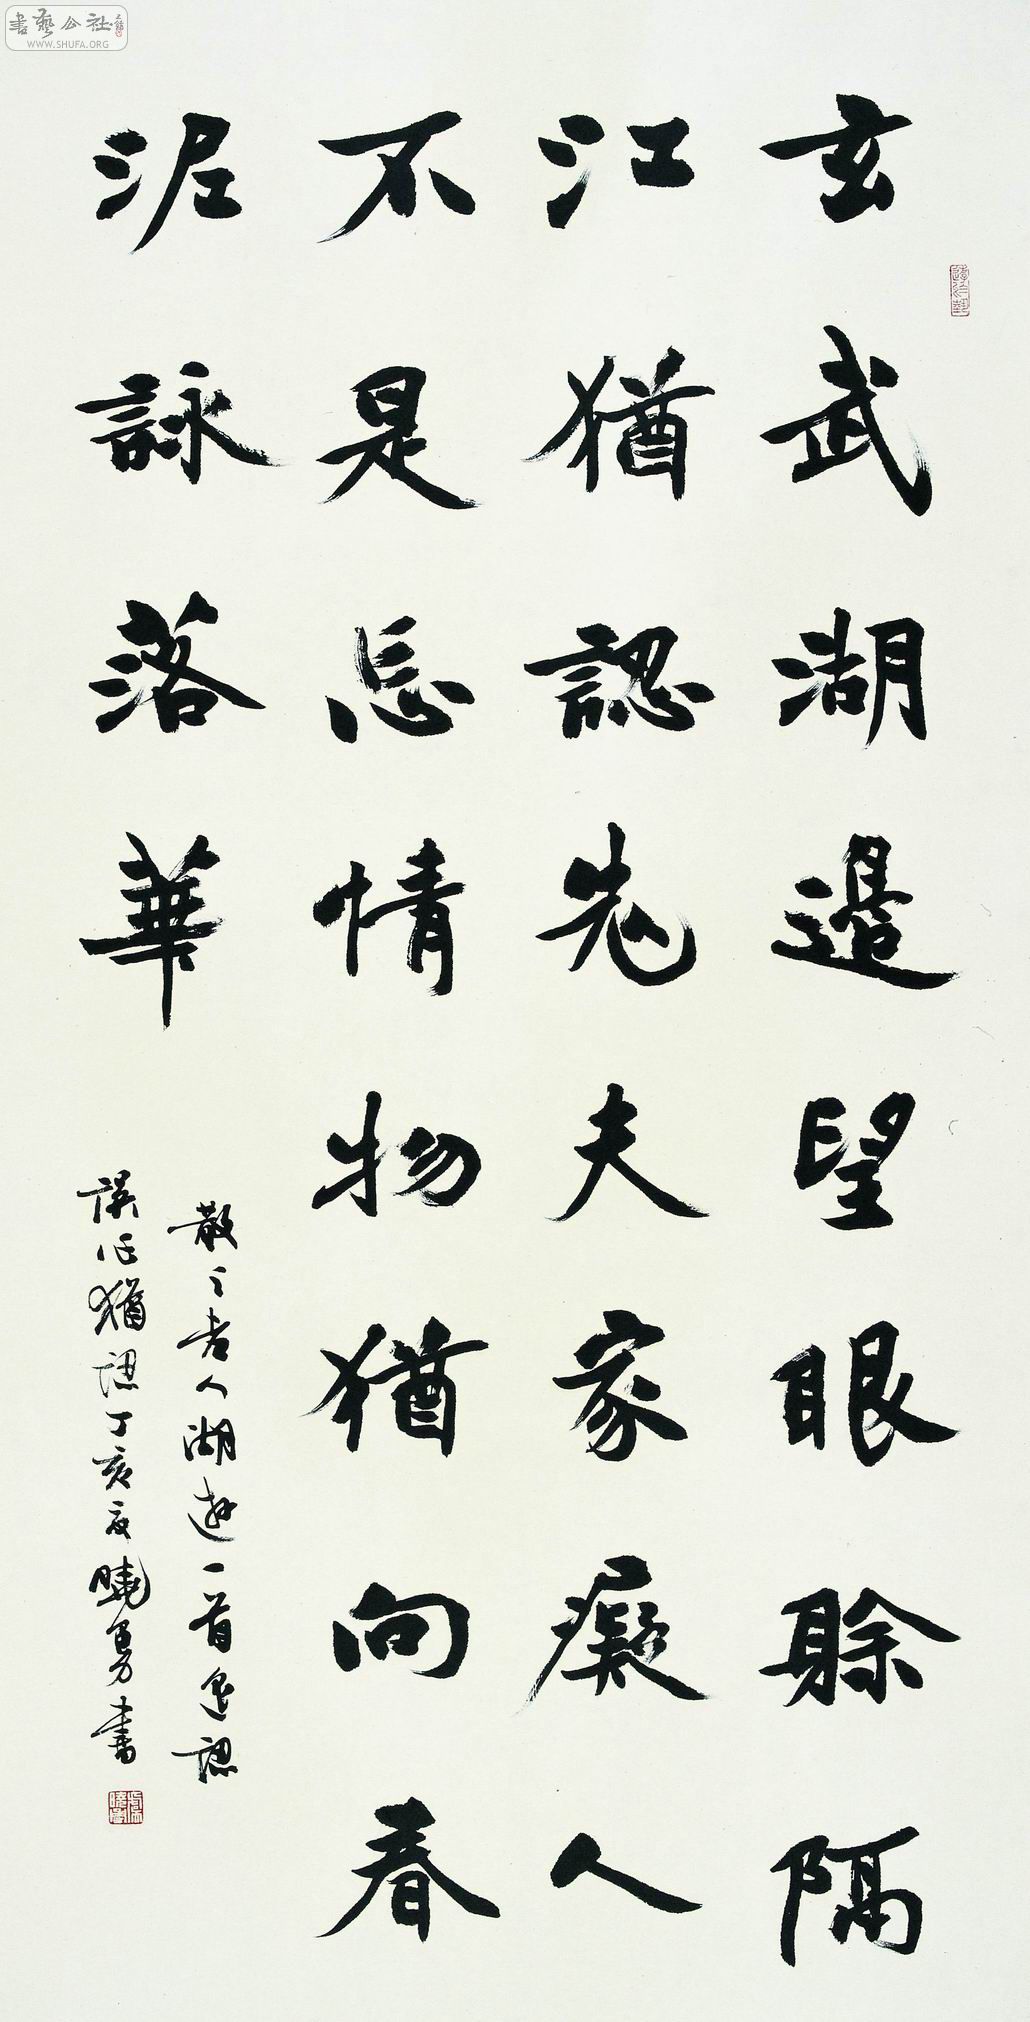 玄武湖邊望眼賖隔
江猶認先夫家癡人
不是忘情物猶向春
泥詠落華
散之老人湖遊一首還認
誤作猶認丁亥夏曉勇書
書藝公社
WWW.SHUFA.ORG